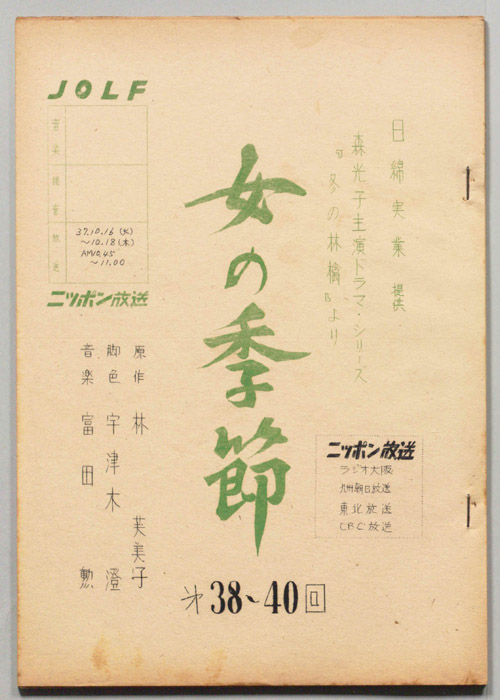 日綿実業 提供
森光子主演ドラマ・シリーズ
『冬の林檎』より
女の季節
JOLF
音楽
録音
放送
37.10.16(火)
～10.18(木)
AM10.45
～11.00
ニッポン放送
原作 林 芙美子
脚色 宇津木 澄
音楽 富田 勲
ニッポン放送
ラジオ大阪
九州朝日放送
東北放送
CBC放送
才38~40回